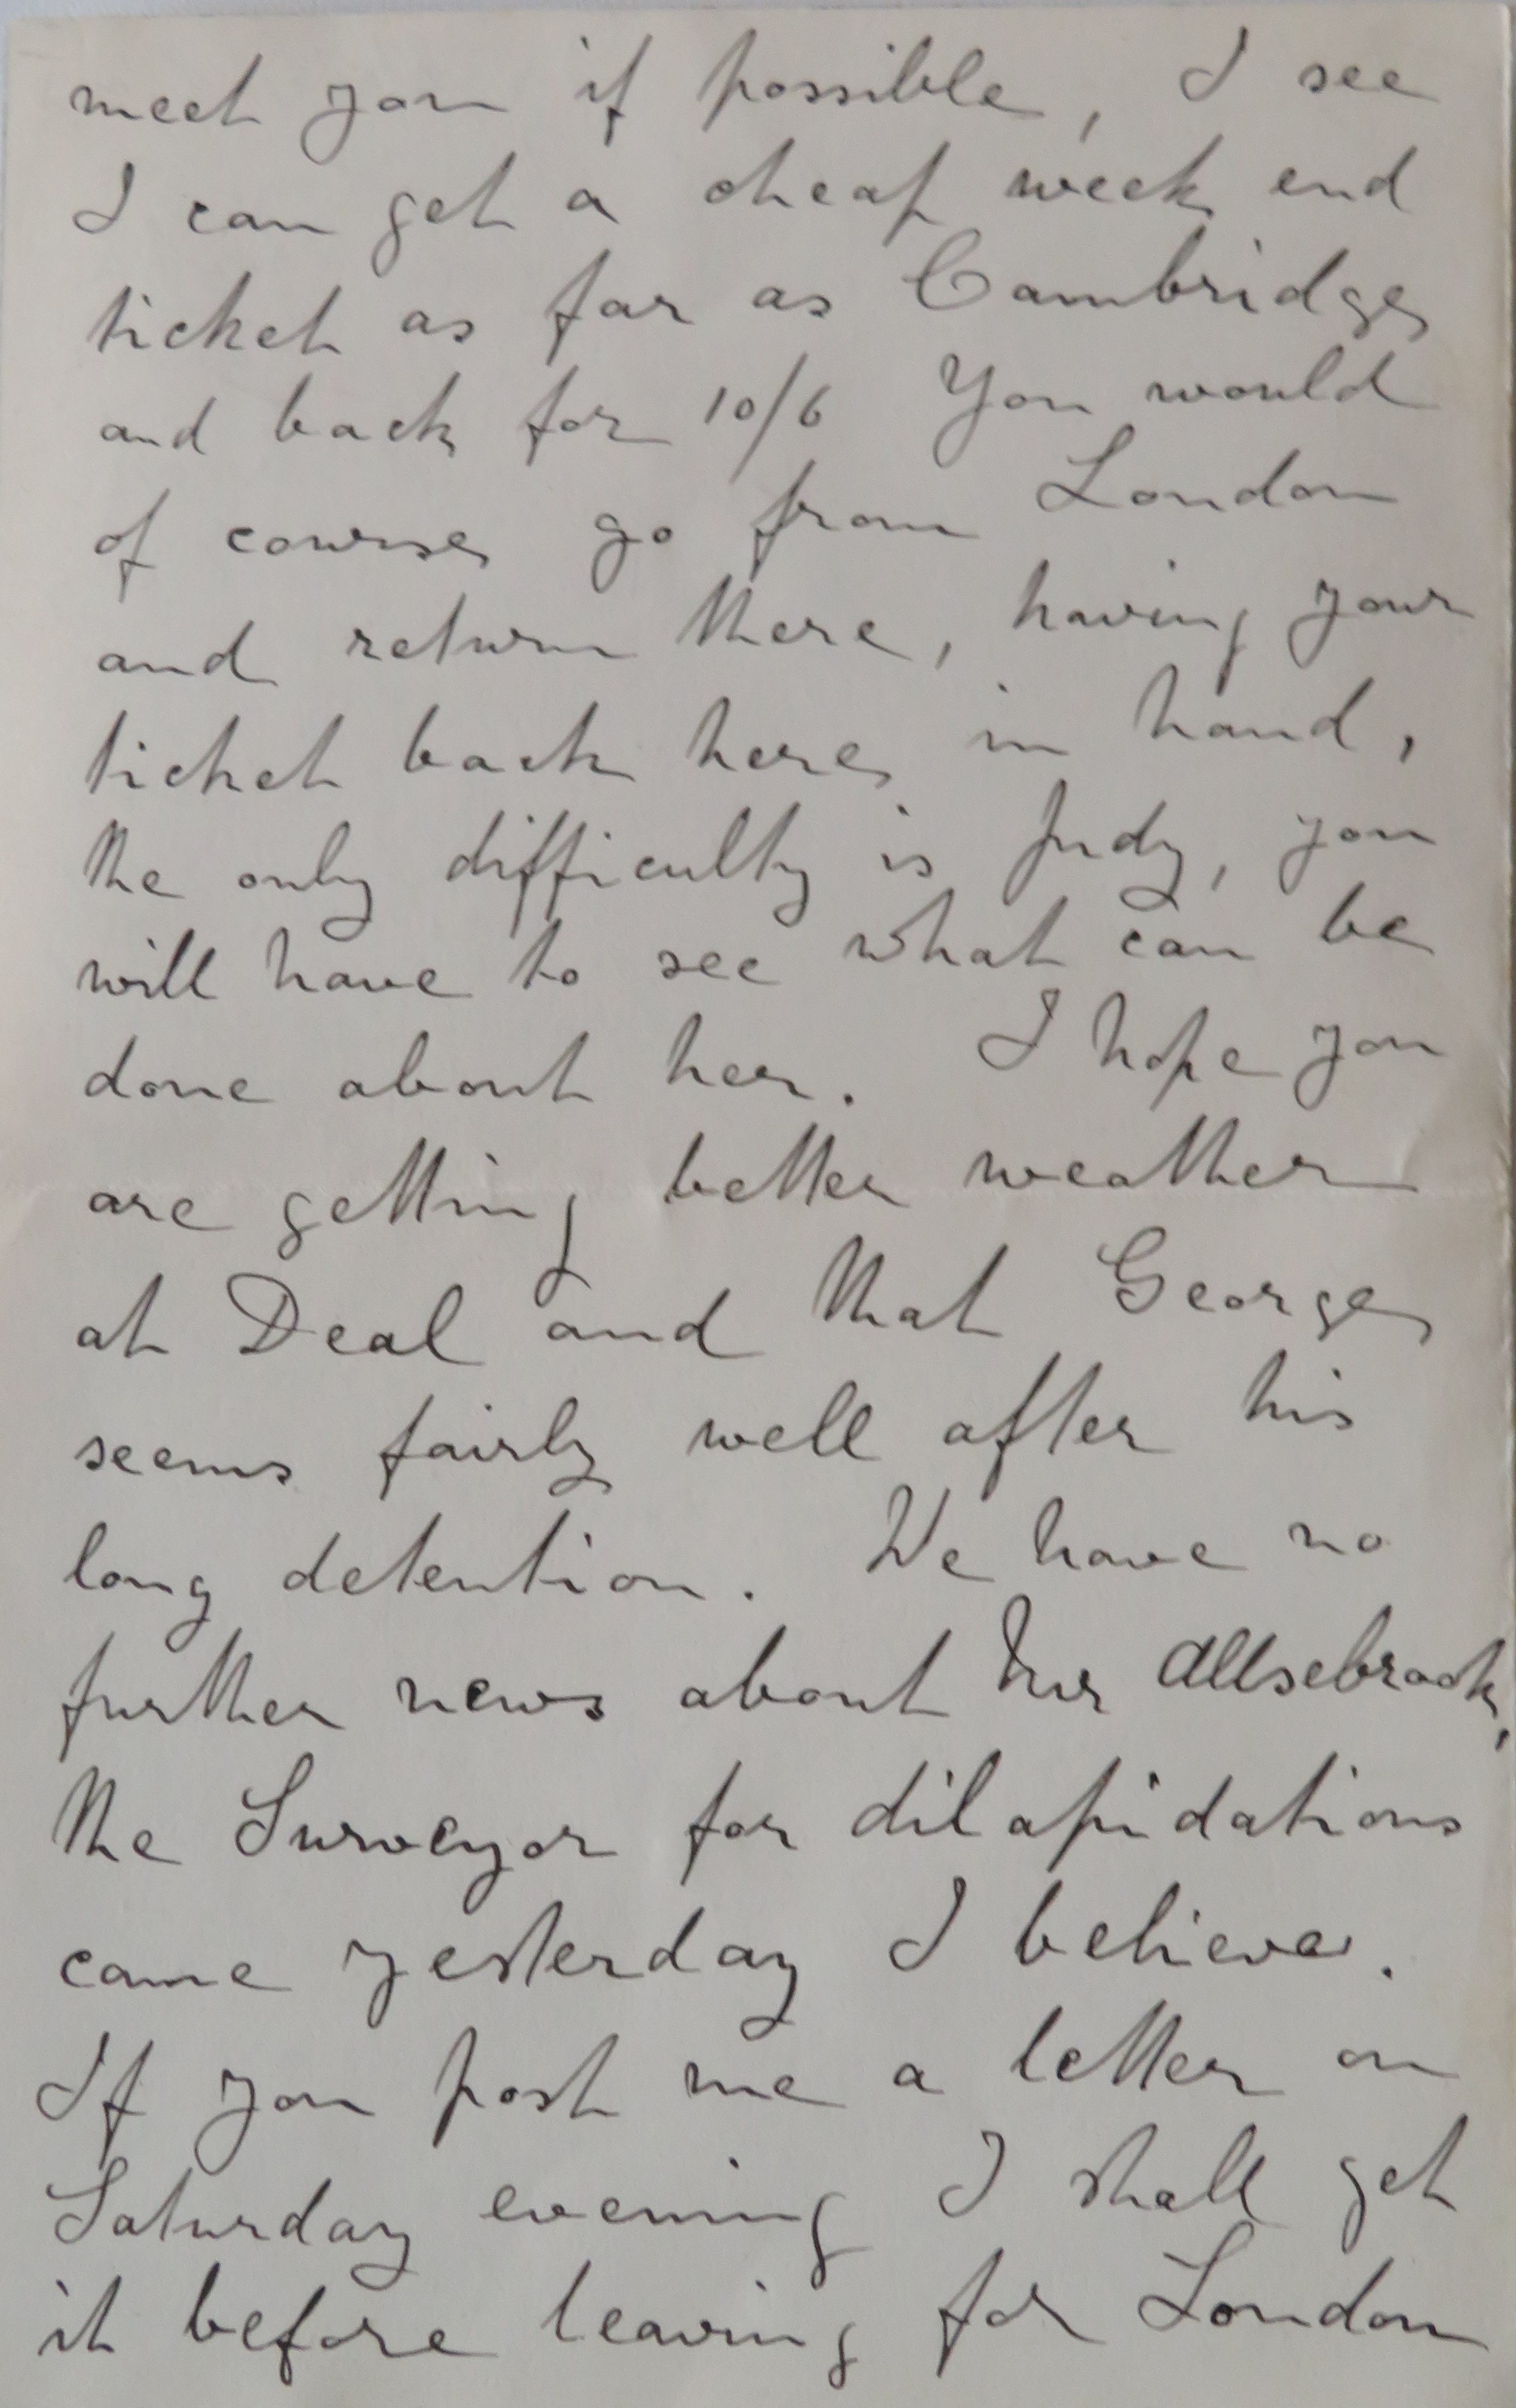 meet you if possible, I see
I can get a cheap week end
ticket as far as Cambridge
and back for 10/6 You would
of course go from London
and return there, having your
ticket back here in hand,
the only difficulty is Judy, you
will have to see what can be
done about her. I hope you
are getting better weather
at Deal and that George
seems fairly well after his
long detention. We have no
further news about Mr Allsebrook,
the Surveyor for dilapidations
came yesterday I believe.
If you post me a letter on
Saturday evening I shall get
it before leaving for London